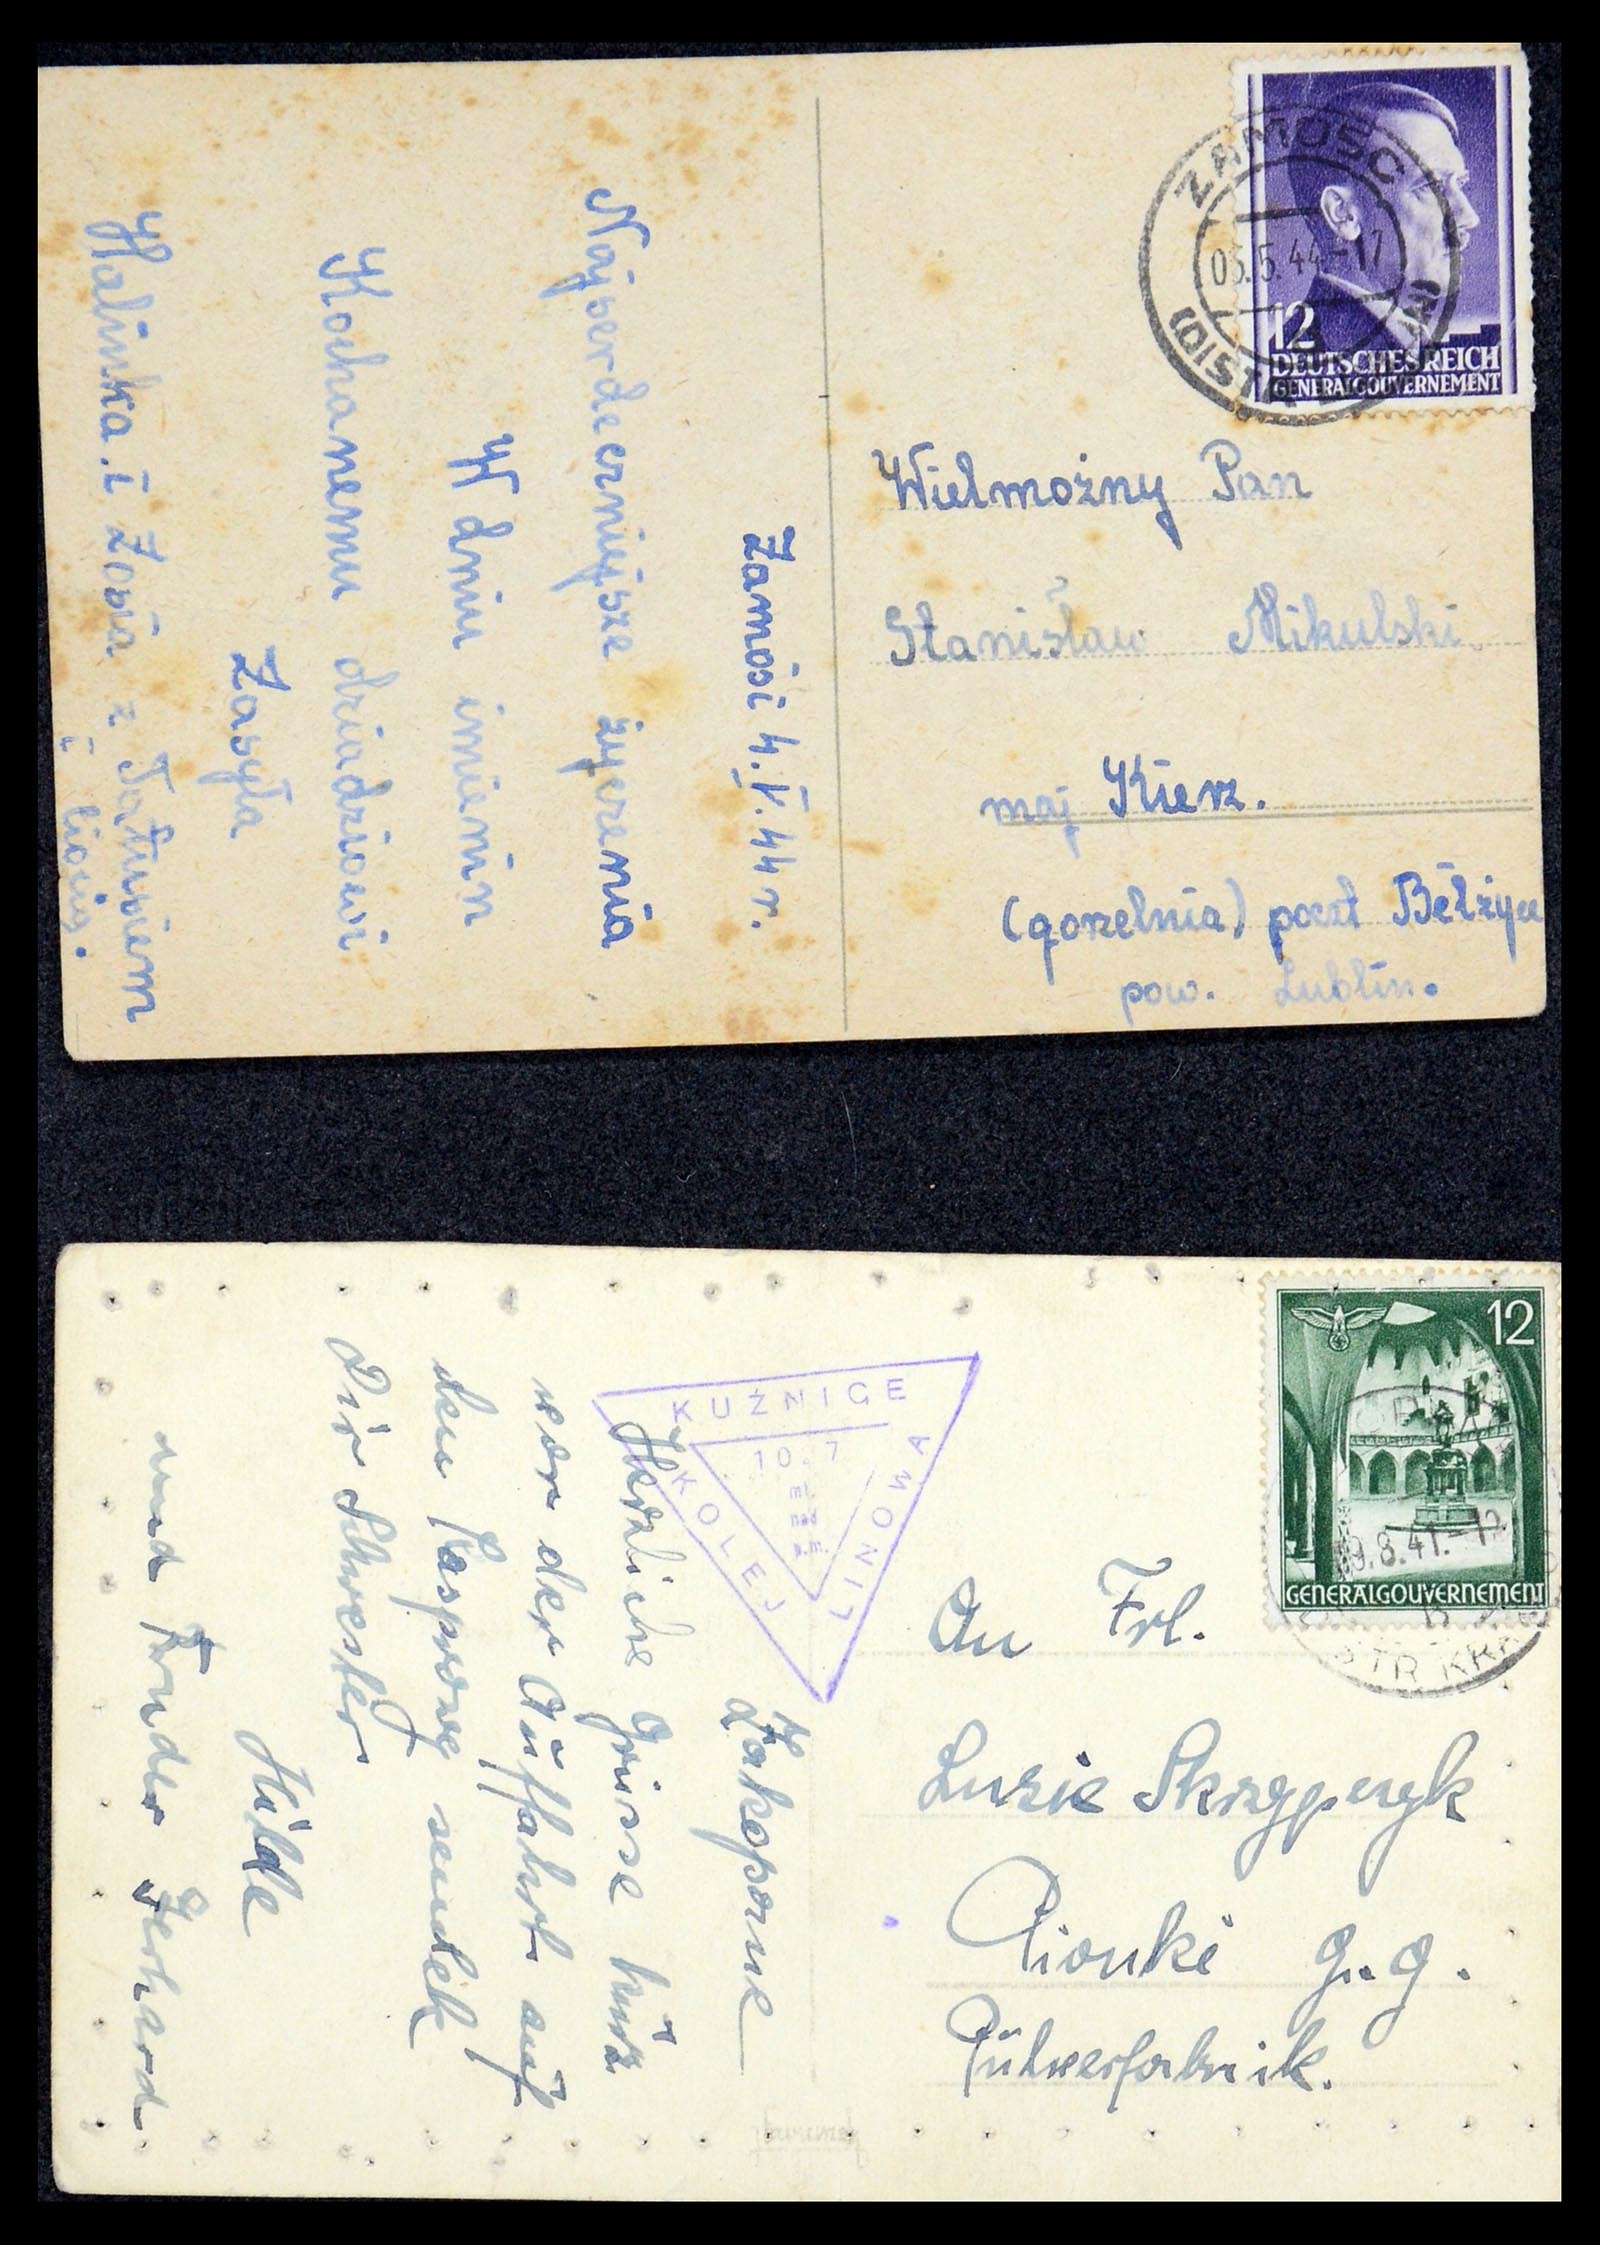 12
DEUTSCHES REICH
GENERALGOUVERNEMENT
ZAMOSC
03.5.44-17
(DISTR.
Wielmożny Pan
Stanisław Mikulski
maj Kierz.
(gorzelnia) poczt Bełżyce
pow. Lublin.
Zamość 4.V.44 r.
Najserdeczniejsze życzenia
W dniu imienin
Kochanemu dziadziowi
Zasyła
Halinka i Zosia z Tatusiem
i
12
GENERALGOUVERNEMENT
9.8.41.-12
DISTR KRA
KUŹNICE
KOLEJ
LINOWA
10.7
mt.
nad
p.m.
An Frl.
Luzie Skrzypczyk
Pionki G.G.
Pulverfabrik.
Zakopane
Herzliche Grüsse kurz
vor der Auffahrt auf
den Kasprowy sendet
Dir Schwester
Hilde
und Bruder Gerhard